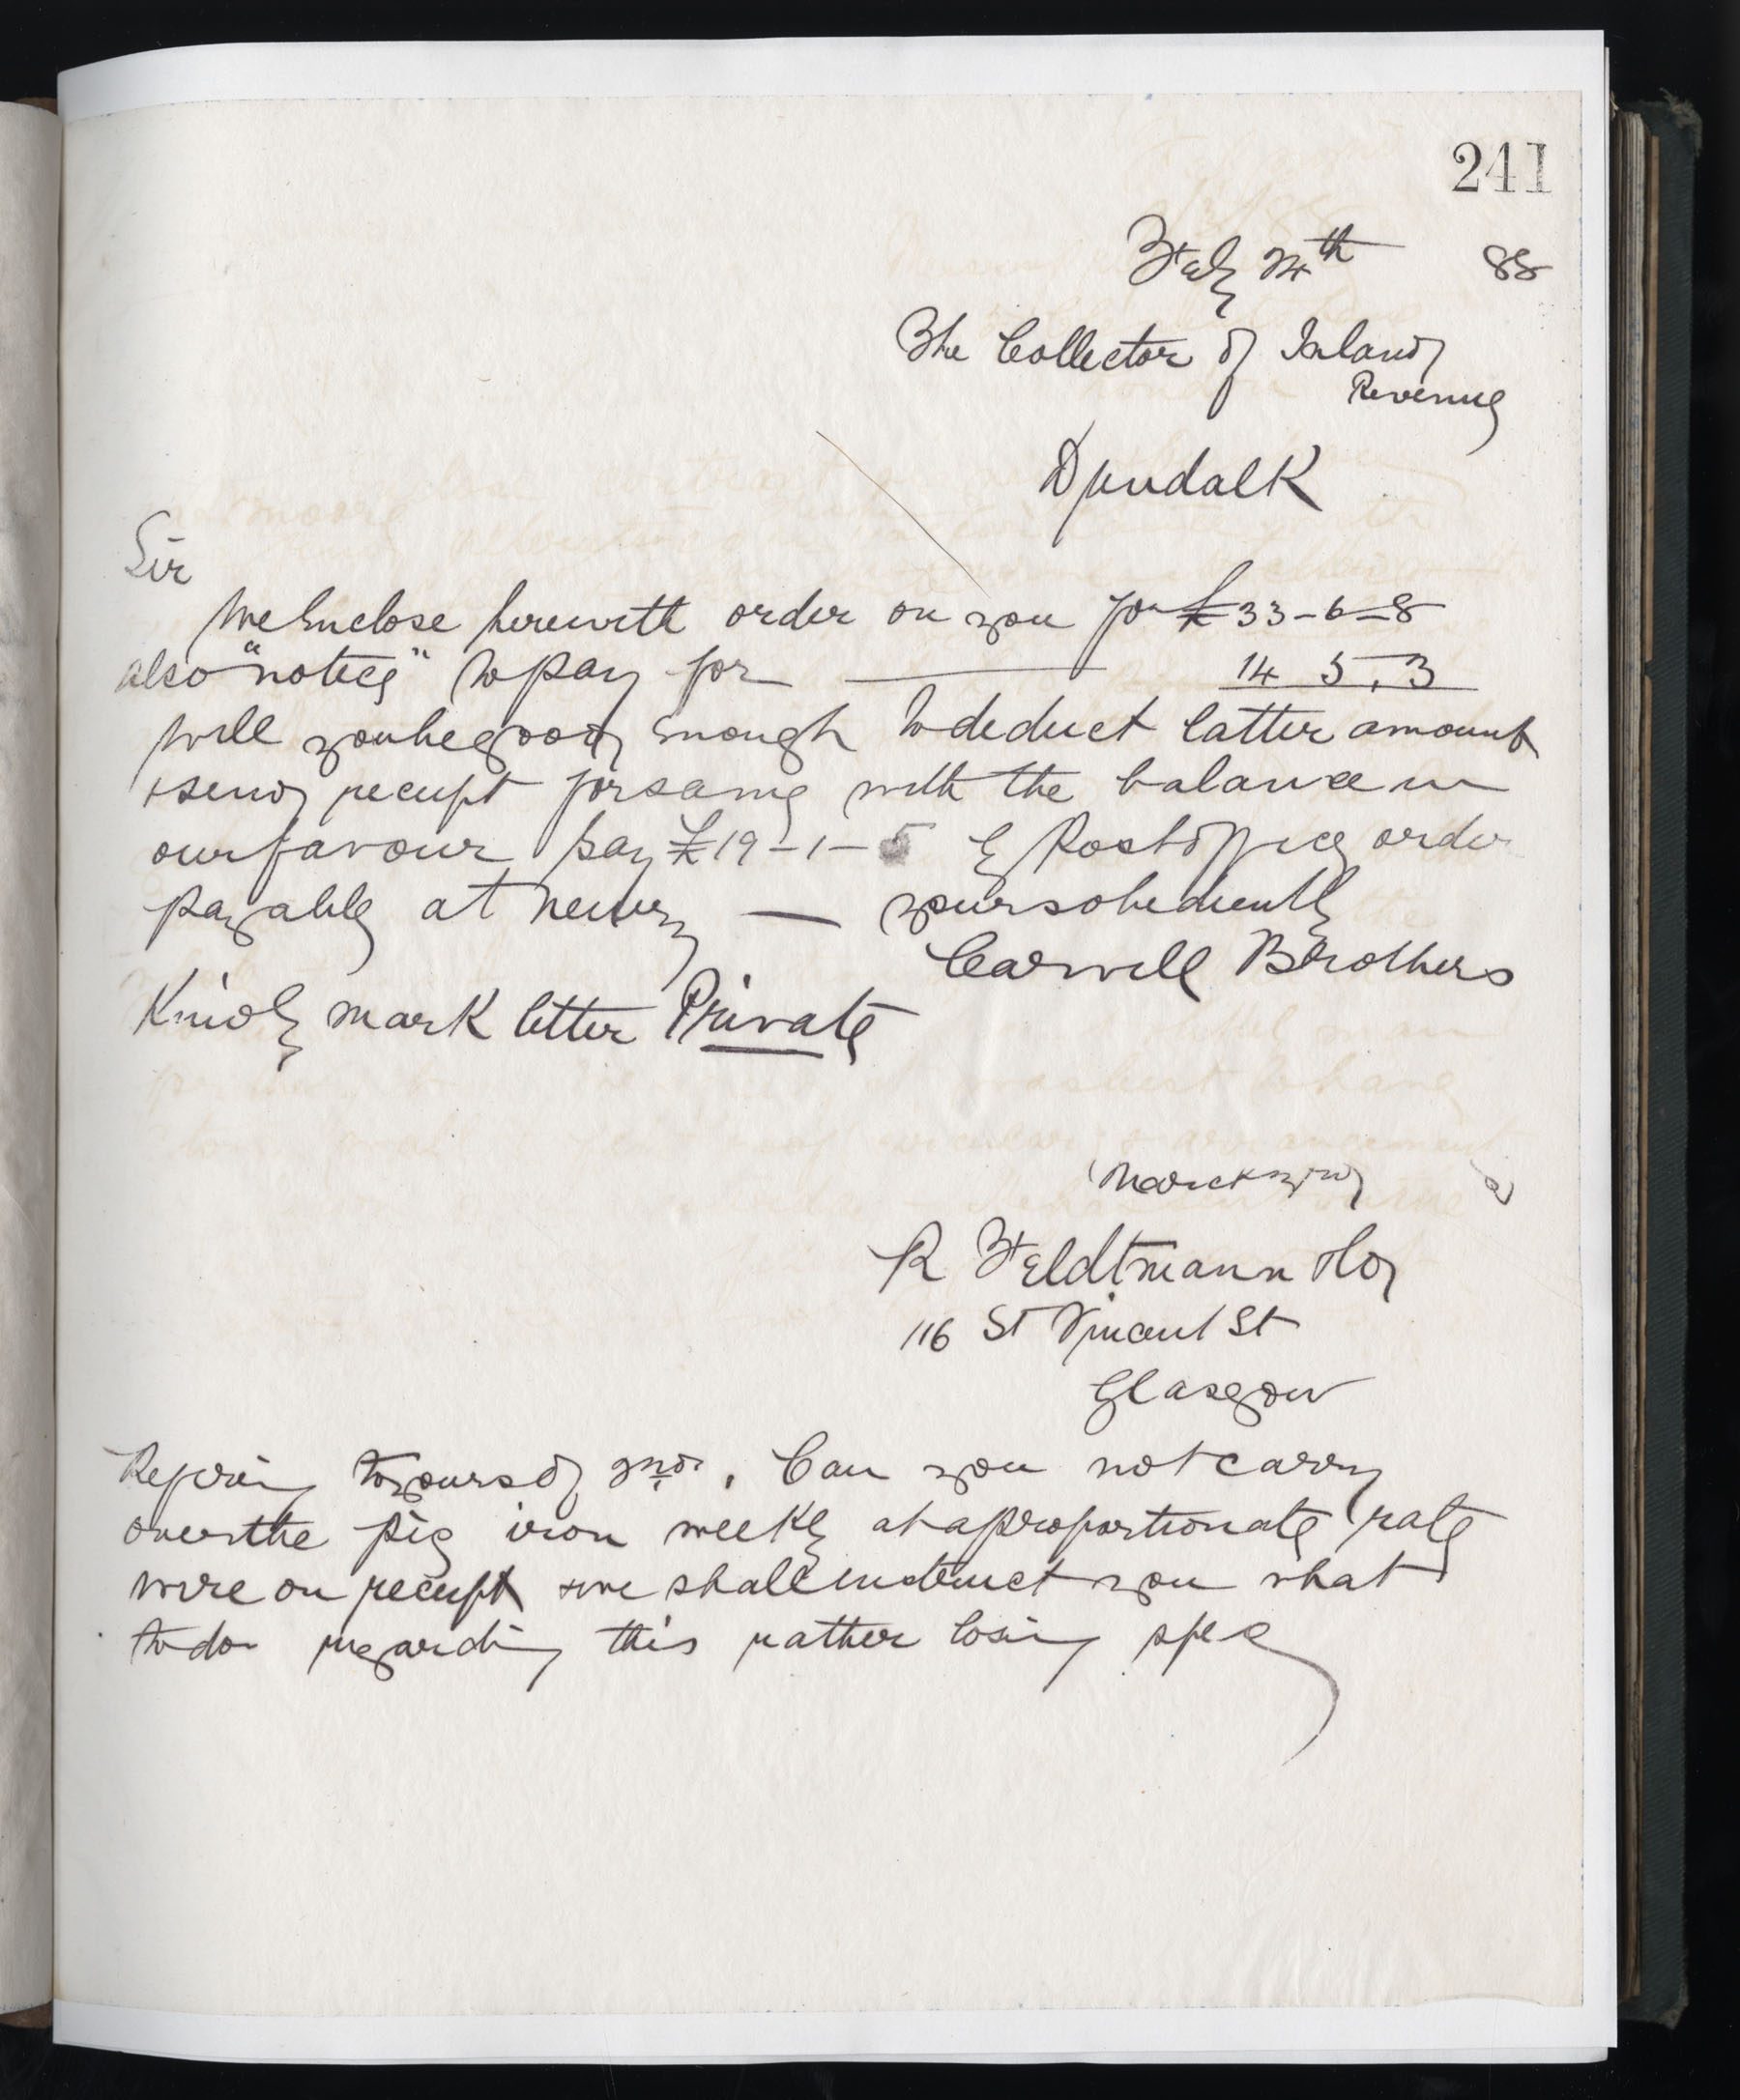 241
Feby 24th 88
The Collector of Inland
Revenue
Dundalk
Sir
We Enclose herewith order on you for £33-6-8
also "notice" to pay for — 14 5.3
will you be good enough to deduct latter amount
& send receipt for same with the balance in
our favour say £19-1-5 by Post office order
payable at Newry — yours obediently
Carvill Brothers
Kindly mark letter Private
March 3rd
R Feldtmann & Co
116 St Vincent St
Glasgow
Refering to yours of 2nd. Can you not carry
over the pig iron weekly at a proportionate rate
wire on receipt & we shall instruct you what
to do regarding this rather losing spec